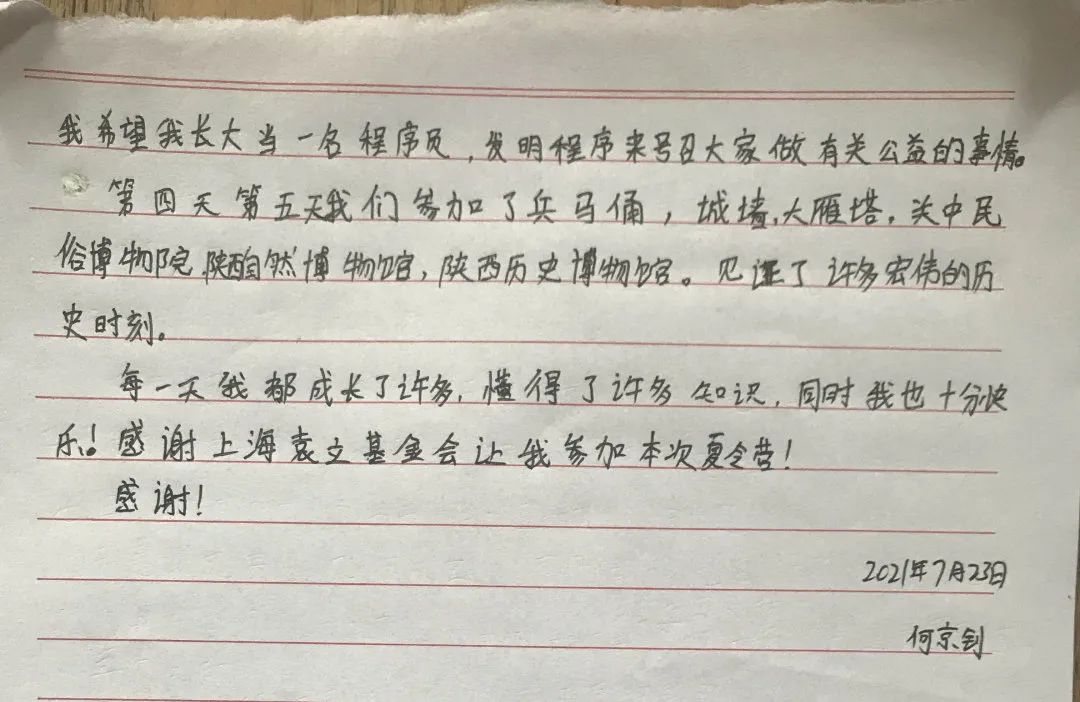 我希望我长大当一名程序员,发明程序来号召大家做有关公益的事情。
第四天第五天我们参加了兵马俑,城墙,大雁塔,关中民
俗博物院,陕西自然博物馆,陕西历史博物馆。见证了许多宏伟的历
史时刻。
每一天我都成长了许多,懂得了许多知识,同时我也十分快
乐!感谢上海袁立基金会让我参加本次夏令营!
感谢!
2021年7月23日
何京钊